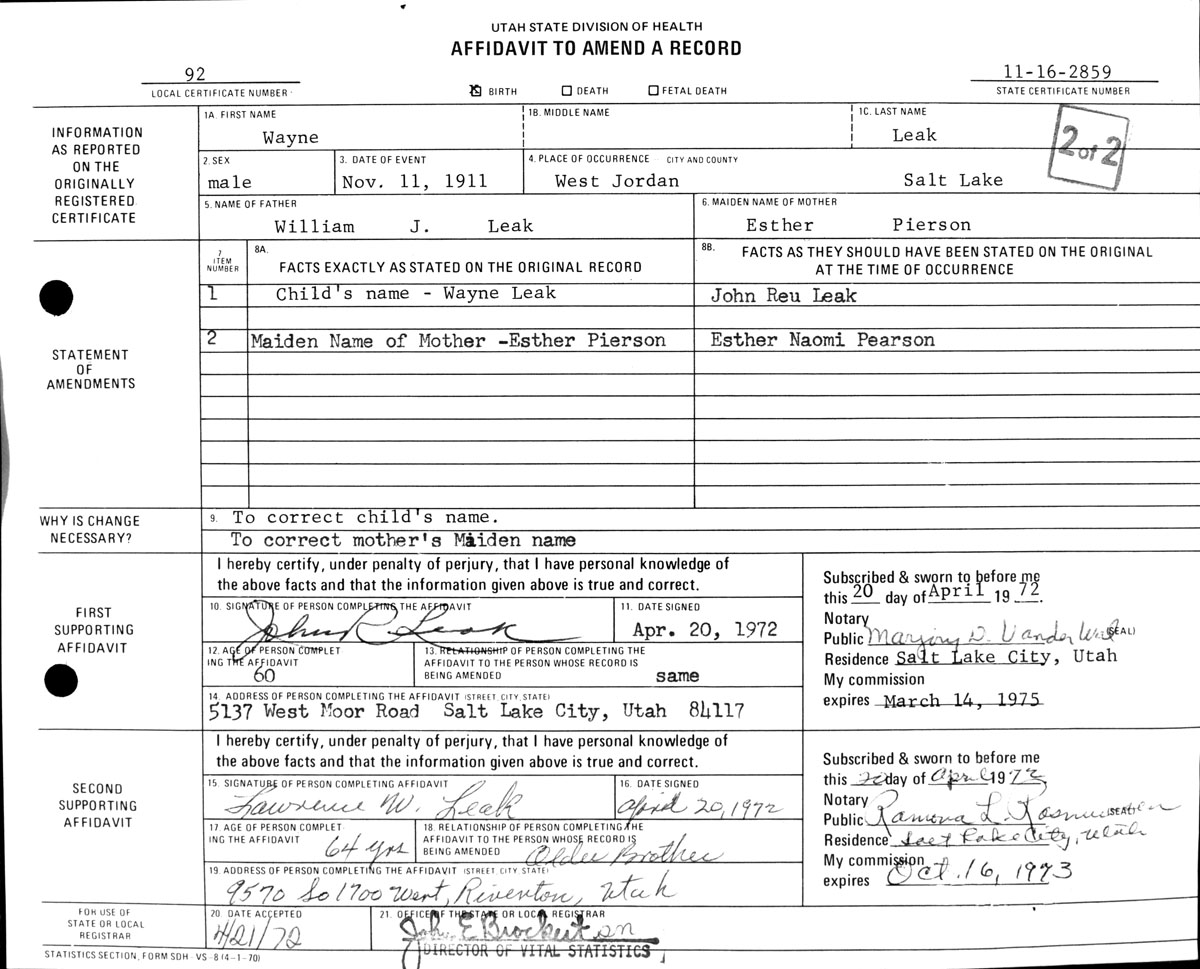 UTAH STATE DIVISION OF HEALTH
AFFIDAVIT TO AMEND A RECORD
92
LOCAL CERTIFICATE NUMBER
☒ BIRTH ☐ DEATH ☐ FETAL DEATH
11-16-2859
STATE CERTIFICATE NUMBER
2 of 2
INFORMATION
AS REPORTED
ON THE
ORIGINALLY
REGISTERED
CERTIFICATE
1A. FIRST NAME 1B. MIDDLE NAME 1C. LAST NAME
Wayne Leak
2. SEX 3. DATE OF EVENT 4. PLACE OF OCCURRENCE CITY AND COUNTY
male Nov. 11, 1911 West Jordan Salt Lake
5. NAME OF FATHER 6. MAIDEN NAME OF MOTHER
William J. Leak Esther Pierson
STATEMENT
OF
AMENDMENTS
7
ITEM
NUMBER
8A.
FACTS EXACTLY AS STATED ON THE ORIGINAL RECORD
8B. FACTS AS THEY SHOULD HAVE BEEN STATED ON THE ORIGINAL
AT THE TIME OF OCCURRENCE
1 Child's name - Wayne Leak John Reu Leak
2 Maiden Name of Mother -Esther Pierson Esther Naomi Pearson
WHY IS CHANGE
NECESSARY?
9. To correct child's name.
To correct mother's Maiden name
FIRST
SUPPORTING
AFFIDAVIT
I hereby certify, under penalty of perjury, that I have personal knowledge of
the above facts and that the information given above is true and correct.
10. SIGNATURE OF PERSON COMPLETING THE AFFIDAVIT
John R Leak
11. DATE SIGNED
Apr. 20, 1972
12. AGE OF PERSON COMPLET
ING THE AFFIDAVIT
60
13. RELATIONSHIP OF PERSON COMPLETING THE
AFFIDAVIT TO THE PERSON WHOSE RECORD IS
BEING AMENDED same
14. ADDRESS OF PERSON COMPLETING THE AFFIDAVIT (STREET, CITY, STATE)
5137 West Moor Road Salt Lake City, Utah 84117
Subscribed & sworn to before me
this 20 day of April 1972.
Notary
Public Marjory D. VanderWal (SEAL)
Residence Salt Lake City, Utah
My commission
expires March 14, 1975
SECOND
SUPPORTING
AFFIDAVIT
I hereby certify, under penalty of perjury, that I have personal knowledge of
the above facts and that the information given above is true and correct.
15. SIGNATURE OF PERSON COMPLETING AFFIDAVIT
Lawrence W. Leak
16. DATE SIGNED
April 20, 1972
17. AGE OF PERSON COMPLET
ING THE AFFIDAVIT 64 yrs
18. RELATIONSHIP OF PERSON COMPLETING THE
AFFIDAVIT TO THE PERSON WHOSE RECORD IS
BEING AMENDED Older Brother
19. ADDRESS OF PERSON COMPLETING THE AFFIDAVIT (STREET, CITY, STATE)
9570 So 1700 West, Riverton, Utah
Subscribed & sworn to before me
this 20 day of April 1972
Notary
Public Ramona L. Rasmussen (SEAL)
Residence Salt Lake City, Utah
My commission
expires Oct. 16, 1973
FOR USE OF
STATE OR LOCAL
REGISTRAR
20. DATE ACCEPTED
4/21/72
21. OFFICE OF THE STATE OR LOCAL REGISTRAR
John E Brockert
DIRECTOR OF VITAL STATISTICS
STATISTICS SECTION, FORM SDH - VS - 8 (4-1-70)